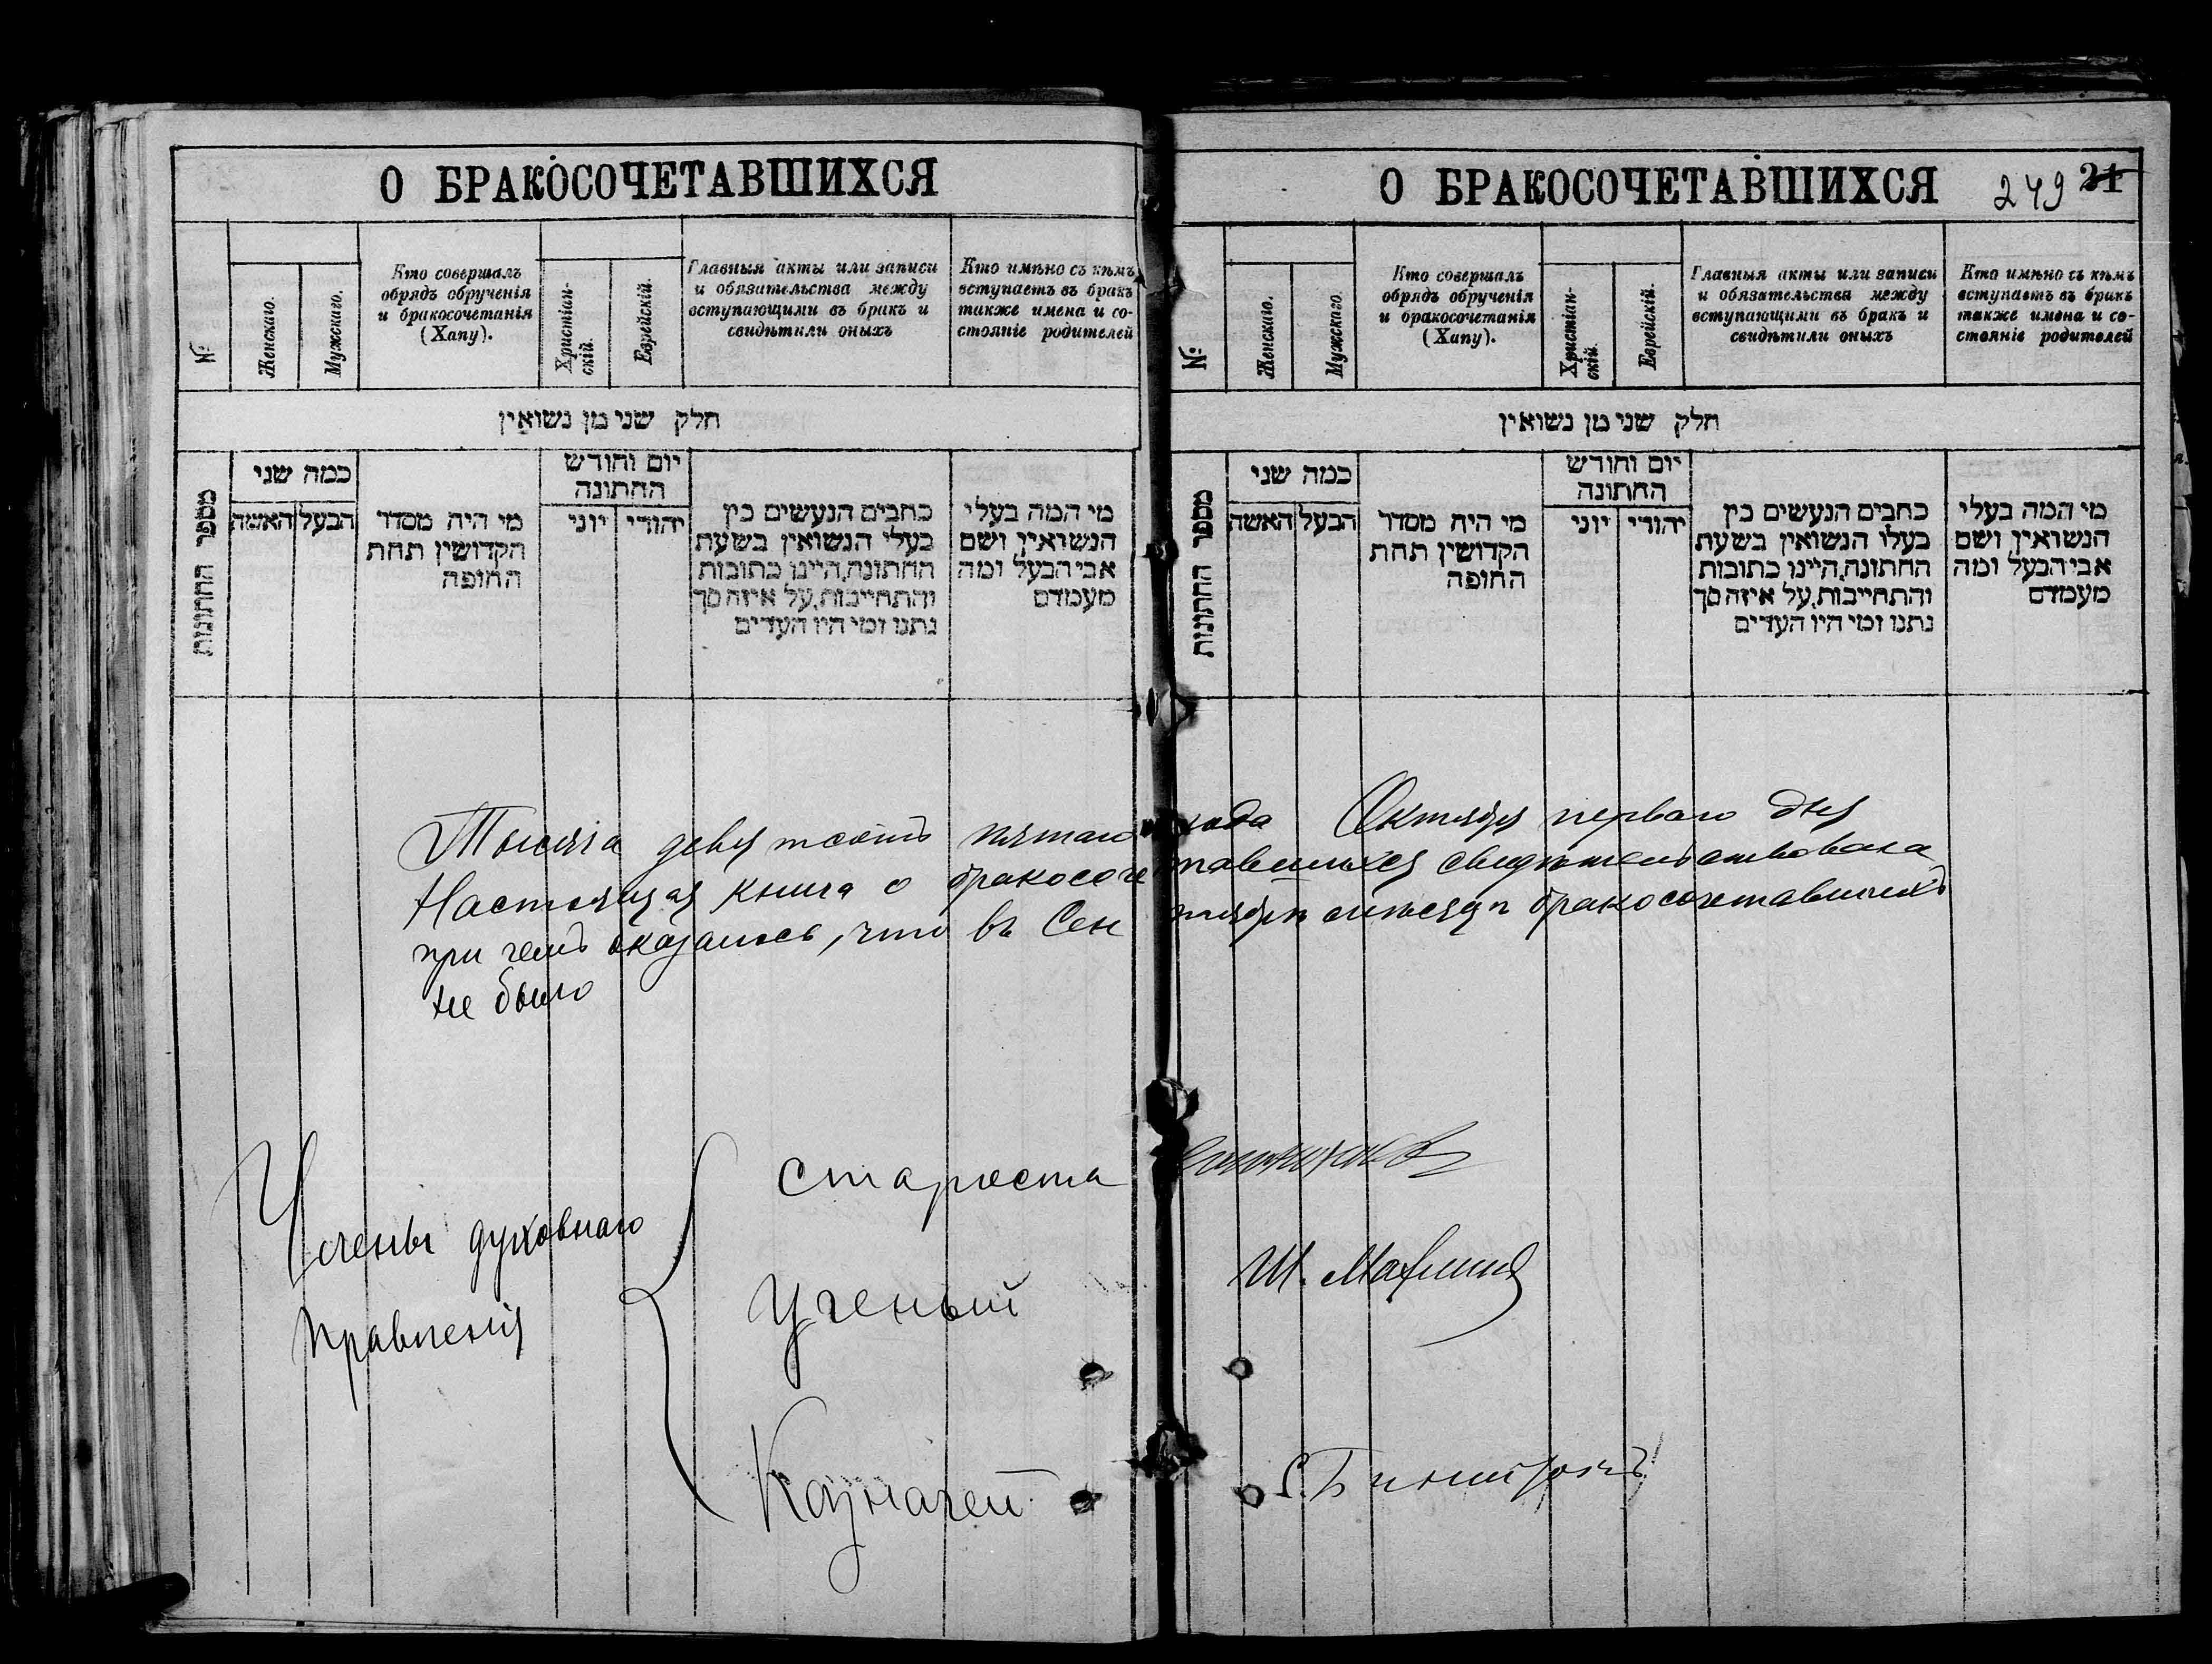 О БРАКОСОЧЕТАВШИХСЯ
№
Женскаго.
Мужскаго.
Кто совершалъ
обрядъ обрученія
и бракосочетанія
(Хапу).
Христіан-
скій.
Еврейскій.
Главныя акты или записи
и обязательства между
вступающими въ бракъ и
свидѣтили оныхъ
Кто имѣно съ кѣмъ
вступаетъ въ бракъ
также имена и со-
стояніе родителей
חלק שני מן נשואין
מספר החתונות
כמה שני
האשה
הבעל
מי היה מסדר
הקדושין תחת
החופה
יום וחודש
החתונה
יוני
יהודי
כתבים הנעשים בין
בעלי הנשואין בשעת
החתונה, היינו כתובות
והתחייבות, על איזה סך
נתנו ומי היו העדים
מי המה בעלי
הנשואין ושם
אבי הבעל ומה
מעמדם
О БРАКОСОЧЕТАВШИХСЯ
249 21
№
Женскаго.
Мужскаго.
Кто совершалъ
обрядъ обрученія
и бракосочетанія
(Хапу).
Христіан-
скій.
Еврейскій.
Главныя акты или записи
и обязательства между
вступающими въ бракъ и
свидѣтили оныхъ
Кто имѣно съ кѣмъ
вступаетъ въ бракъ
также имена и со-
стояніе родителей
חלק שני מן נשואין
מספר החתונות
כמה שני
האשה
הבעל
מי היה מסדר
הקדושין תחת
החופה
יום וחודש
החתונה
יוני
יהודי
כתבים הנעשים בין
בעלי הנשואין בשעת
החתונה, היינו כתובות
והתחייבות, על איזה סך
נתנו ומי היו העדים
מי המה בעלי
הנשואין ושם
אבי הבעל ומה
מעמדם
Тысяча девятсотъ пятаго года Октября перваго дня
Настоящая книга о бракосочетавшихся свидѣтельствована
при чемъ оказалось, что въ Сентябрѣ мѣсяцѣ бракосочетавшихъ
не было
Члены духовнаго
правленія
Староста
Ученый Ш.
Казначей С.